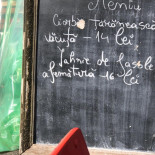 Meniu
Ciorbă țărănească
văcuță - 14 lei
Iahnie de fasole
afumătură 16 lei